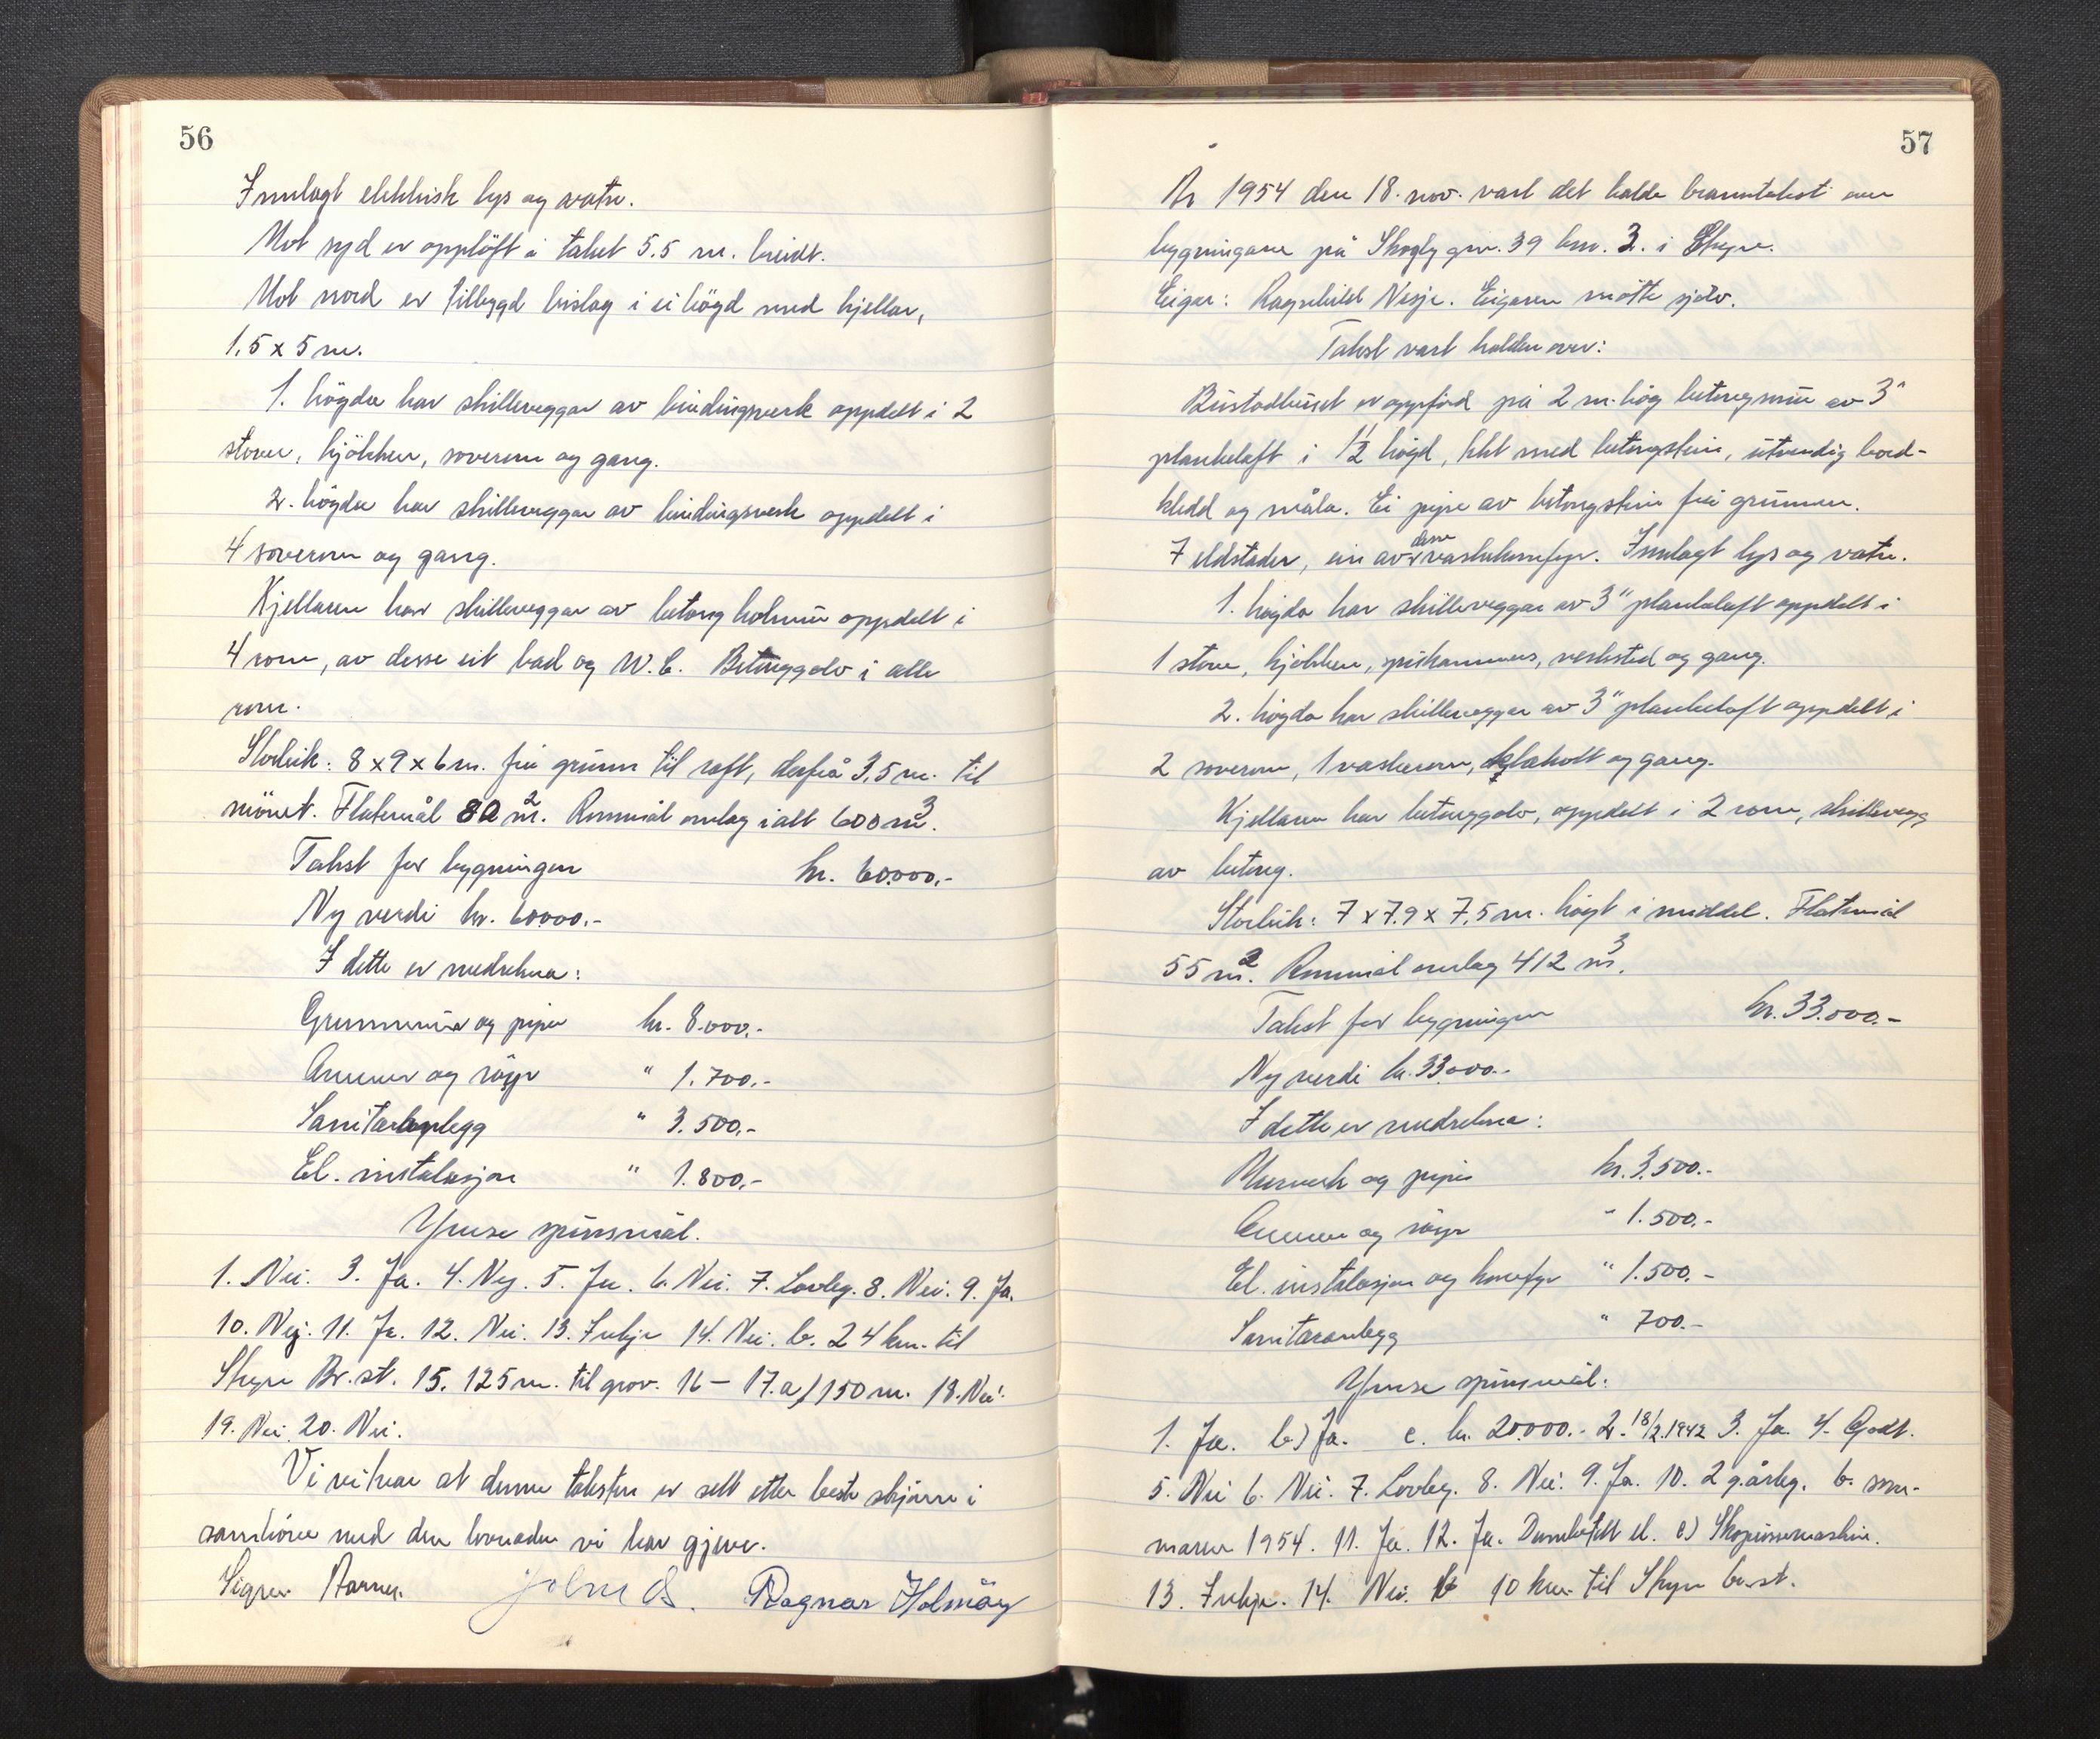 56
Innlagt elektrisk lys og vatn.
Mot syd er opplöft i taket 5.5 m. breidt.
Mot nord er tilbygd bislag i ei högd med kjellar,
1.5 x 5 m.
1. högda har skilleveggar av bindingsverk oppdelt i 2
stover, kjökken, soverom og gang.
2. högda har skilleveggar av bindingsverk oppdelt i
4 soverom og gang.
Kjellaren har skilleveggar av betong holmur oppdelt i
4 rom, av desse eit bad og W.C. Betonggolv i alle
rom.
Storleik: 8 x 9 x 6 m. frå grunn til raft, derfrå 3,5 m. til
mönet. Flatemål 80 m². Rommål omlag i alt 600 m³.
Takst for bygningen kr. 60.000.-
Ny verdi kr. 60.000.-
I dette er medrekna:
Grunnmur og pipe kr. 8.000.-
Omnar og röyr " 1.700.-
Sanitæranlegg " 3.500.-
El. instalasjon " 1.800.-
Ymse spursmål.
1. Nei. 3. Ja. 4. Ny. 5. Ja. 6. Nei. 7. Lovleg. 8. Nei. 9. Ja.
10. Nei. 11. Ja. 12. Nei. 13. Inkje 14. Nei. b. 24 km. til
Skyn Br.st. 15. 125 m. til grov. 16 — 17. a/150 m. 18. Nei.
19. Nei. 20. Nei.
Vi vitnar at denne taksten er sett etter beste skjönn i
samhöve med den lovnaden vi har gjeve.
Sigm. Aarnes. John Ragnar Holmöy
57
År 1954 den 18. nov. vart det halde branntakst over
bygningane på Skogly gnr. 39 bnr. 3. i Skyn.
Eigar: Ragnhild Nesje. Eigaren mötte sjölv.
Takst vart halden over:
Bustadhuset er oppförd på 2 m. hög betongmur av 3"
plankelaft i 1 1/2 högd, tekt med betongstein, utvendig bord-
kledd og måla. Ei pipe av betongstein frå grunnen.
7 eldstader, ein av desse vaskekomfyr. Innlagt lys og vatn.
1. högda har skilleveggar av 3" plankelaft oppdelt i
1 stove, kjökken, spiskammers, verksted og gang.
2. högda har skilleveggar av 3" plankelaft oppdelt i
2 soverom, 1 vaskerom, og gang.
Kjellaren har betonggolv, oppdelt i 2 rom, skillevegg
av betong.
Storleik: 7 x 7.9 x 7,5 m. högt i middel. Flatemål
55 m². Rommål omlag 412 m³.
Takst for bygningen kr. 33.000.-
Ny verdi kr. 33.000.-
I dette er medrekna:
Murverk og pipe kr. 3.500.-
Omnar og röyr " 1.500.-
El. instalasjon og komfyr " 1.500.-
Sanitæranlegg " 700.-
Ymse spursmål:
1. Ja. b) Ja. c. kr. 20.000.- 2. 18/2.1942 3. Ja. 4. Godt.
5. Nei 6. Nei. 7. Lovleg. 8. Nei. 9. Ja. 10. 2 g. årleg. b. som-
maren 1954. 11. Ja. 12. Ja. el. c) Skopussemaskin.
13. Inkje. 14. Nei. b 10 km. til Skyn br.st.